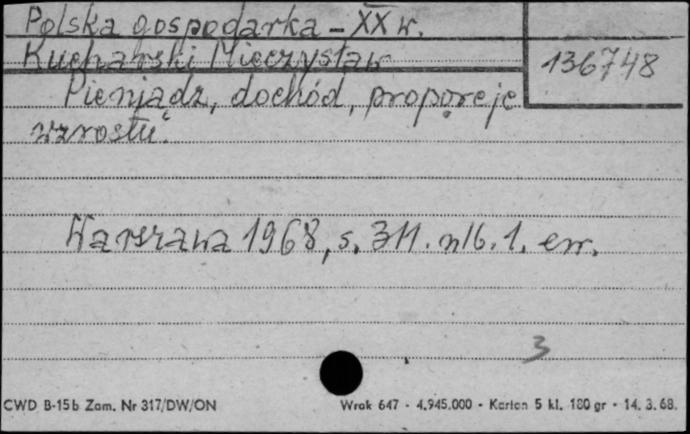 Polska gospodarka - XX w.
Kucharski Mieczysław
136748
Pieniądz, dochód, proporcje
wzrostu.
Warszawa 1968, s. 311. nlb. 1. err.
3
CWD B-15b Zam. Nr 317/DW/ON Wrok 647 - 4.945.000 - Karton 5 kl. 180 gr - 14. 3. 68.